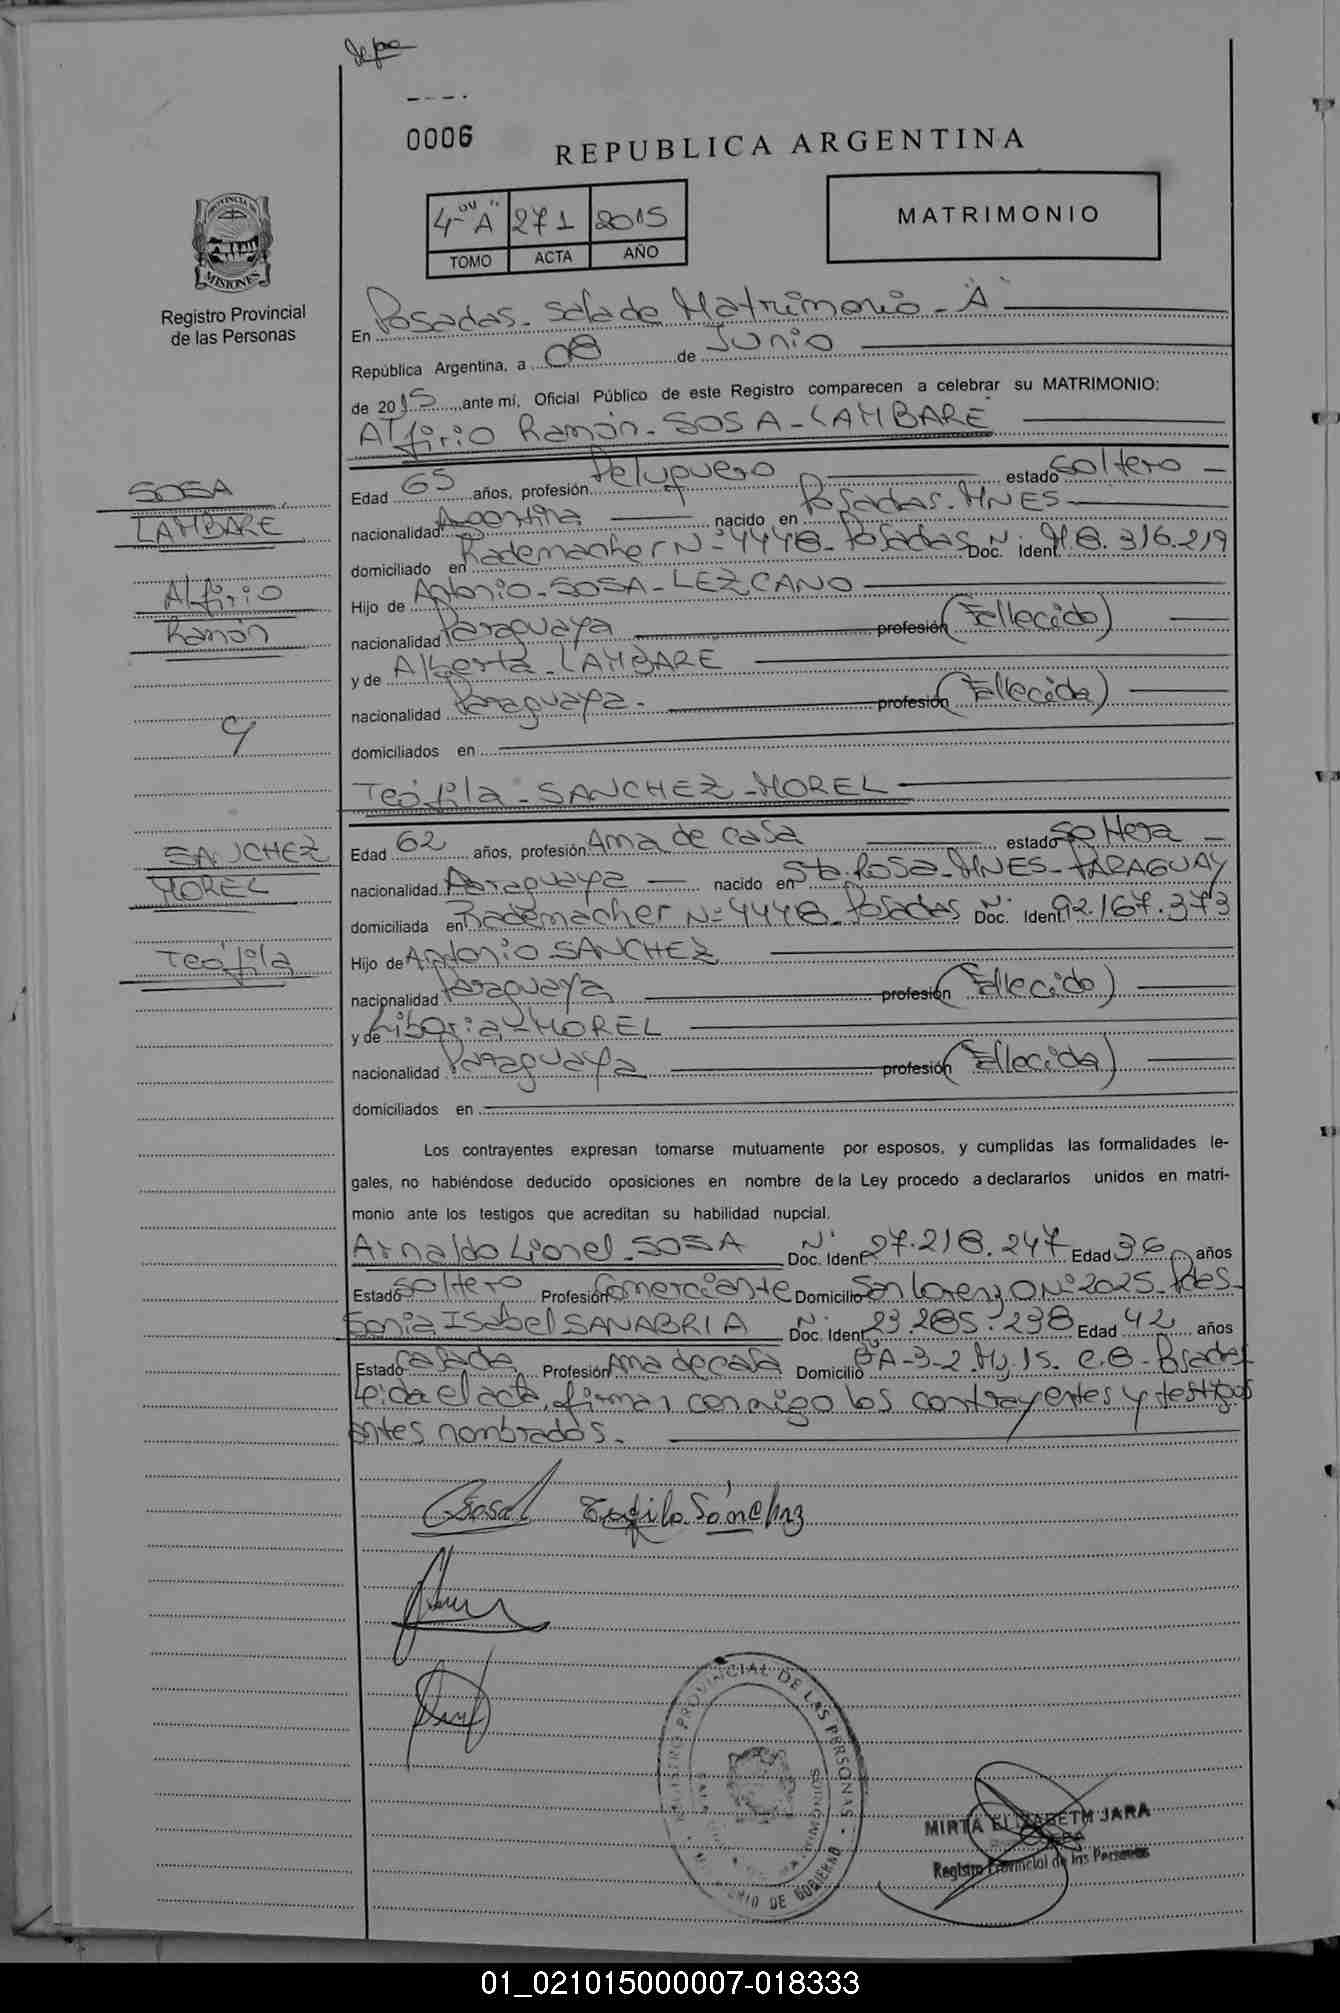 0006
REPUBLICA ARGENTINA
4to "A" 271 2015
TOMO ACTA AÑO
MATRIMONIO
PROVINCIA DE
MISIONES
Registro Provincial
de las Personas
En Posadas - Sala de Matrimonio - "A"
República Argentina, a 08 de Junio
de 2015, ante mí, Oficial Público de este Registro comparecen a celebrar su MATRIMONIO:
Alfirio Ramón - SOSA - LAMBARÉ
Edad 65 años, profesión Peluquero estado soltero
nacionalidad Argentina nacido en Posadas - MNES
domiciliado en Rademacher Nº 4448 - Posadas Doc. Ident. Nº M 8.316.219
Hijo de Antonio - SOSA - LEZCANO
nacionalidad Paraguaya profesión (Fallecido)
y de Alberta - LAMBARE
nacionalidad Paraguaya - profesión (Fallecida)
domiciliados en
Teófila - SANCHEZ - MOREL
Edad 62 años, profesión Ama de casa estado soltera
nacionalidad Paraguaya nacido en Sta. Rosa - MNES - PARAGUAY
domiciliada en Rademacher Nº 4448 - Posadas Doc. Ident. Nº 92.167.373
Hijo de Antonio - SANCHEZ
nacionalidad Paraguaya profesión (Fallecido)
y de Liboria - MOREL
nacionalidad Paraguaya profesión (Fallecida)
domiciliados en
SOSA
LAMBARE
Alfirio
Ramón
y
SANCHEZ
MOREL
Teófila
Los contrayentes expresan tomarse mutuamente por esposos, y cumplidas las formalidades le-
gales, no habiéndose deducido oposiciones en nombre de la Ley procedo a declararlos unidos en matri-
monio ante los testigos que acreditan su habilidad nupcial.
Arnaldo Lionel - SOSA Doc. Ident. Nº 27.218.247 Edad 36 años
Estado soltero Profesión Comerciante Domicilio San Lorenzo Nº 2025 - Pdas -
Sonia Isabel SANABRIA Doc. Ident. Nº 23.285.238 Edad 42 años
Estado casada Profesión Ama de casa Domicilio Posadas
Leida el acta, firman conmigo los contrayentes y testigos
antes nombrados.
Teofila Sánchez
REGISTRO PROVINCIAL DE LAS PERSONAS
MINISTERIO DE GOBIERNO
MIRTA ELIZABETH JARA
Registro Provincial de las Personas
01_021015000007-018333